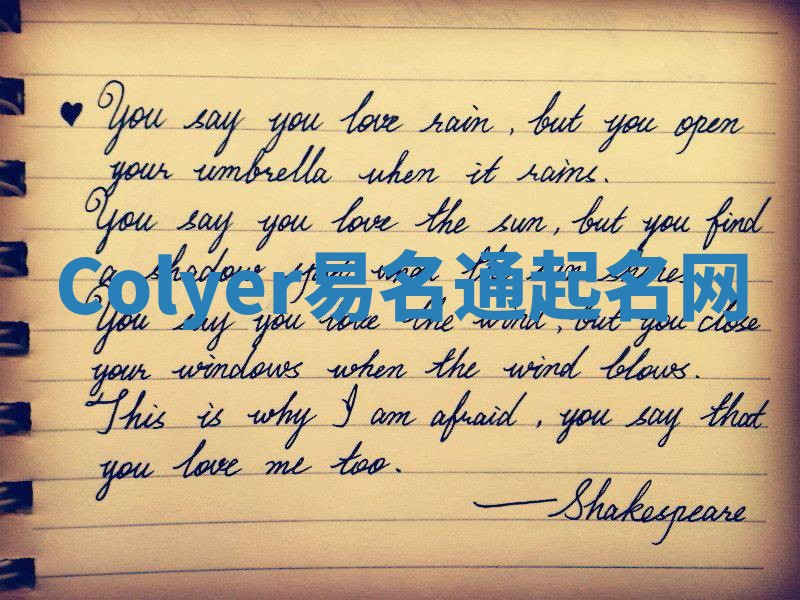 You say you love rain, but you open
your umbrella when it rains.
You say you love the sun, but you find
a shadow spot when the sun shines.
Colyer易名通起名网
You say you love the wind, but you close
your windows when the wind blows.
This is why I am afraid, you say that
you love me too.
—Shakespeare